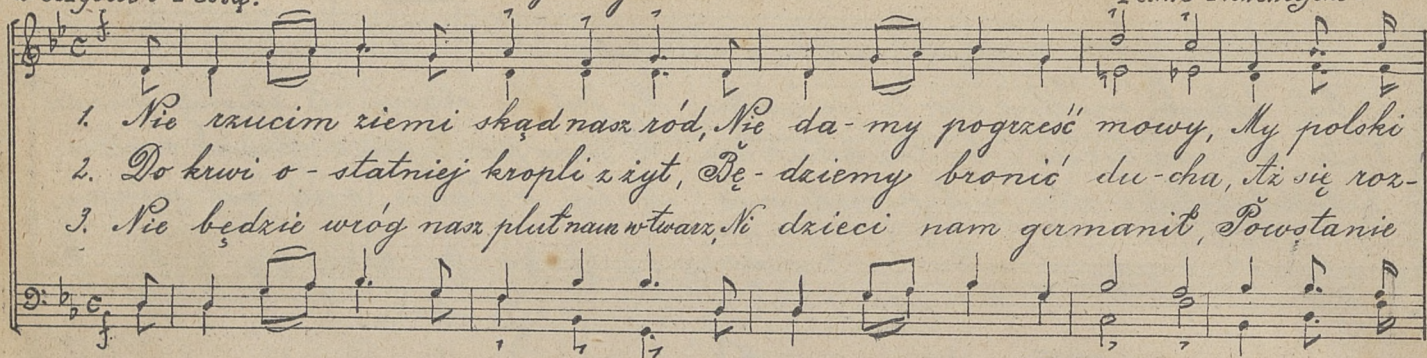 1. Nie rzucim ziemi skąd nasz ród, Nie da-my pogrześć mowy, My polski
2. Do krwi o-statniej kropli z żył, Bę-dziemy bronić du-cha, Aż się roz-
3. Nie będzie wróg nasz pluł nam w twarz, Ni dzieci nam germanił, Powstanie